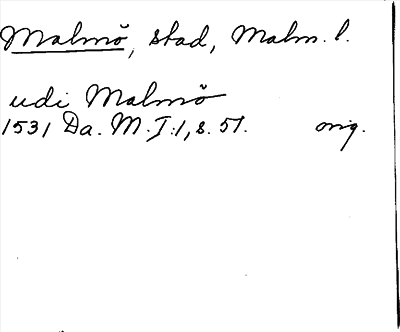 Malmö, stad, Malm. l.
udi Malmö
1531 Da. M. I:1, s. 51. orig.